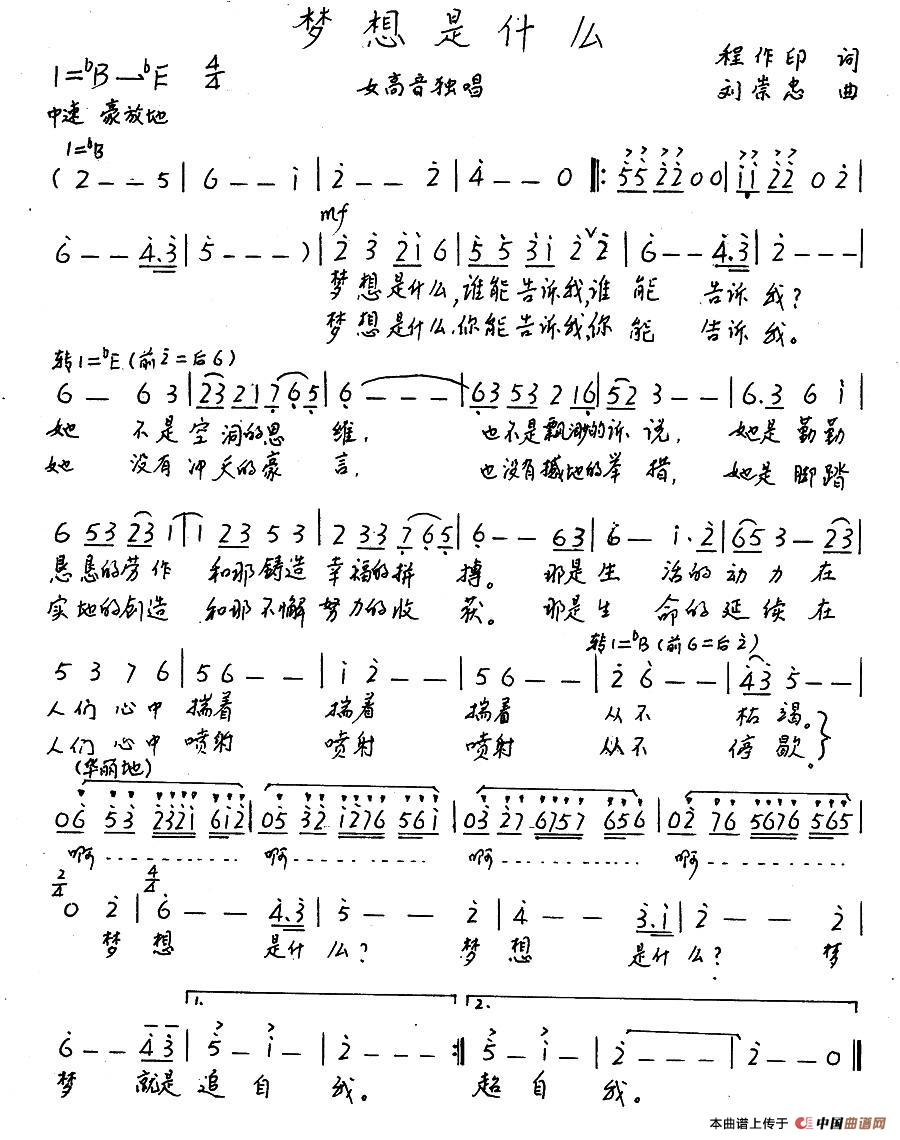 梦想是什么
1=♭B—♭E 4/4
女高音独唱
程作印 词
刘崇忠 曲
中速 豪放地
1=♭B
(2 - - 5 | 6 - - i | 2 - - 2 | 4 - - 0 ‖: 55 22 0 0 | ii 22 0 2 |
mf
6 - - 4.3 | 5 - - - ) | 2 3 2i 6 | 5 5 3i 2 ∨ 2 | 6 - - 4.3 | 2 - - - |
梦想是什么,谁能告诉我,谁 能 告诉 我?
梦想是什么.你能告诉我,你 能 告诉 我。
转1=♭E(前2=后6)
6 - 6 3 | 23 21 7 65 | 6 - - - | 63 53 2 16 | 52 3 - - | 6.3 6 i |
她 不是空洞的思 维, 也不是飘渺的诉 说, 她是 勤勤
她 没有冲天的豪 言, 也没有撼地的举 措, 她是 脚踏
6 53 23 1 | 1 23 5 3 | 2 3·3 7 65 | 6 - - 63 | 6 - i.2 | 65 3 - 23 |
恳恳的劳作 和那铸造 幸福的拼 搏。 那是生 活的动力在
实地的创造 和那不懈努力的收 获。 那是生 命的延续在
转1=♭B(前6=后2)
5 3 7 6 | 5 6 - - | i 2 - - | 5 6 - - | 2 6 - - | 43 5 - - |
人们心中 揣着 揣着 揣着 从不 枯竭。
人们心中 喷射 喷射 喷射 从不 停歇。
(华丽地)
06 53 2321 6i2 | 05 32 i276 56i | 03 27 6757 656 | 02 76 5676 565 |
啊 啊 啊 啊
2/4 4/4
0 2 | 6 - - 4.3 | 5 - - 2 | 4 - - 3.i | 2 - - 2 |
梦 想 是什 么? 梦 想 是什 么? 梦
1. 2.
6 - - 4 3 | 5 - i - | 2 - - - :‖ 5 - i - | 2 - - - | 2 - - 0 ‖
梦 就是 追 自 我。 超 自 我。
本曲谱上传于 中国曲谱网